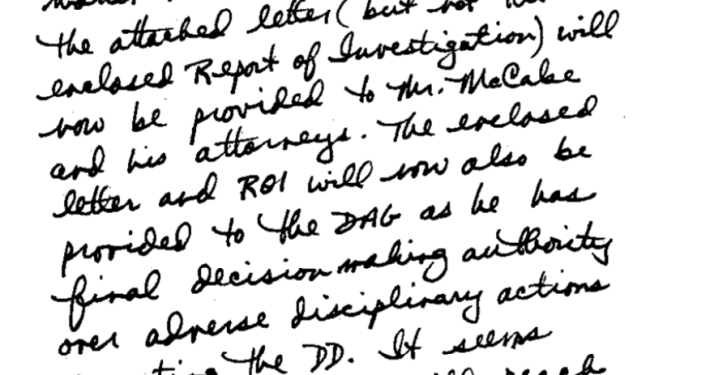 the attached letter (but not
enclosed Report of Investigation) will
now be provided to Mr. McCabe
and his attorneys. The enclosed
letter and ROI will now also be
provided to the DAG as he has
final decision making authority
over adverse disciplinary actions
the DD. It seems
reach